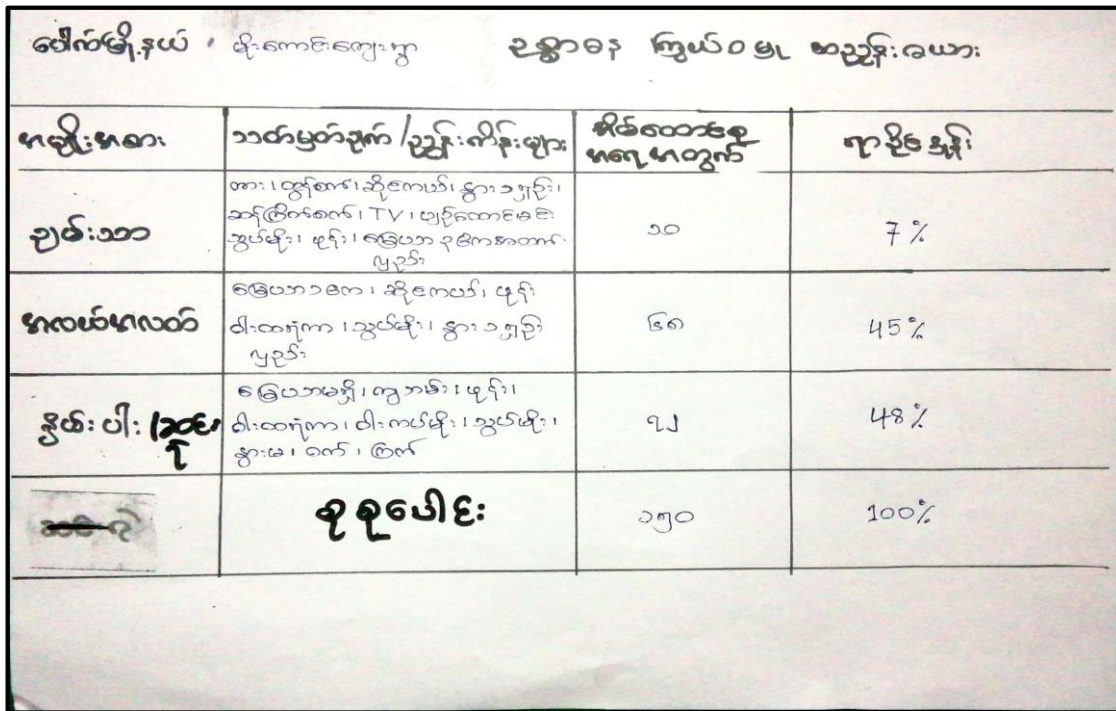 ပေါက်မြို့နယ် ၊ မိုးကောင်းကျေးရွာ ဥစ္စာဓန ကြွယ်ဝမှု အညွှန်းဇယား
အမျိုးအစား
သတ်မှတ်ချက် /ညွှန်းကိန်းများ
အိမ်ထောင်စု
အရေအတွက်
ရာခိုင်နှုန်း
ချမ်းသာ
ကား၊ ထွန်စက်၊ ဆိုင်ကယ်၊ နွား ၁ရှဉ်း၊
ဆန်ကြိတ်စက်၊ TV၊ ပျဉ်ထောင်
သွပ်မိုး၊ ဖုန်း၊
လှည်း
၁၀
7 %
အလယ်အလတ်
မြေယာ ၁ဧက၊ ဆိုင်ကယ်၊ ဖုန်း
ဝါးထရံကာ၊ သွပ်မိုး၊ နွား ၁ရှဉ်း
လှည်း
၆၈
45 %
နွမ်းပါး /ဆင်းရဲ
မြေယာမရှိ၊ ကျဘမ်း၊ ဖုန်း၊
ဝါးထရံကာ၊ ဝါးကပ်မိုး၊ သွပ်မိုး၊
နွားမ၊ ဝက်၊ ကြက်
၇၂
48 %
စုစုပေါင်း
၁၅၀
100%